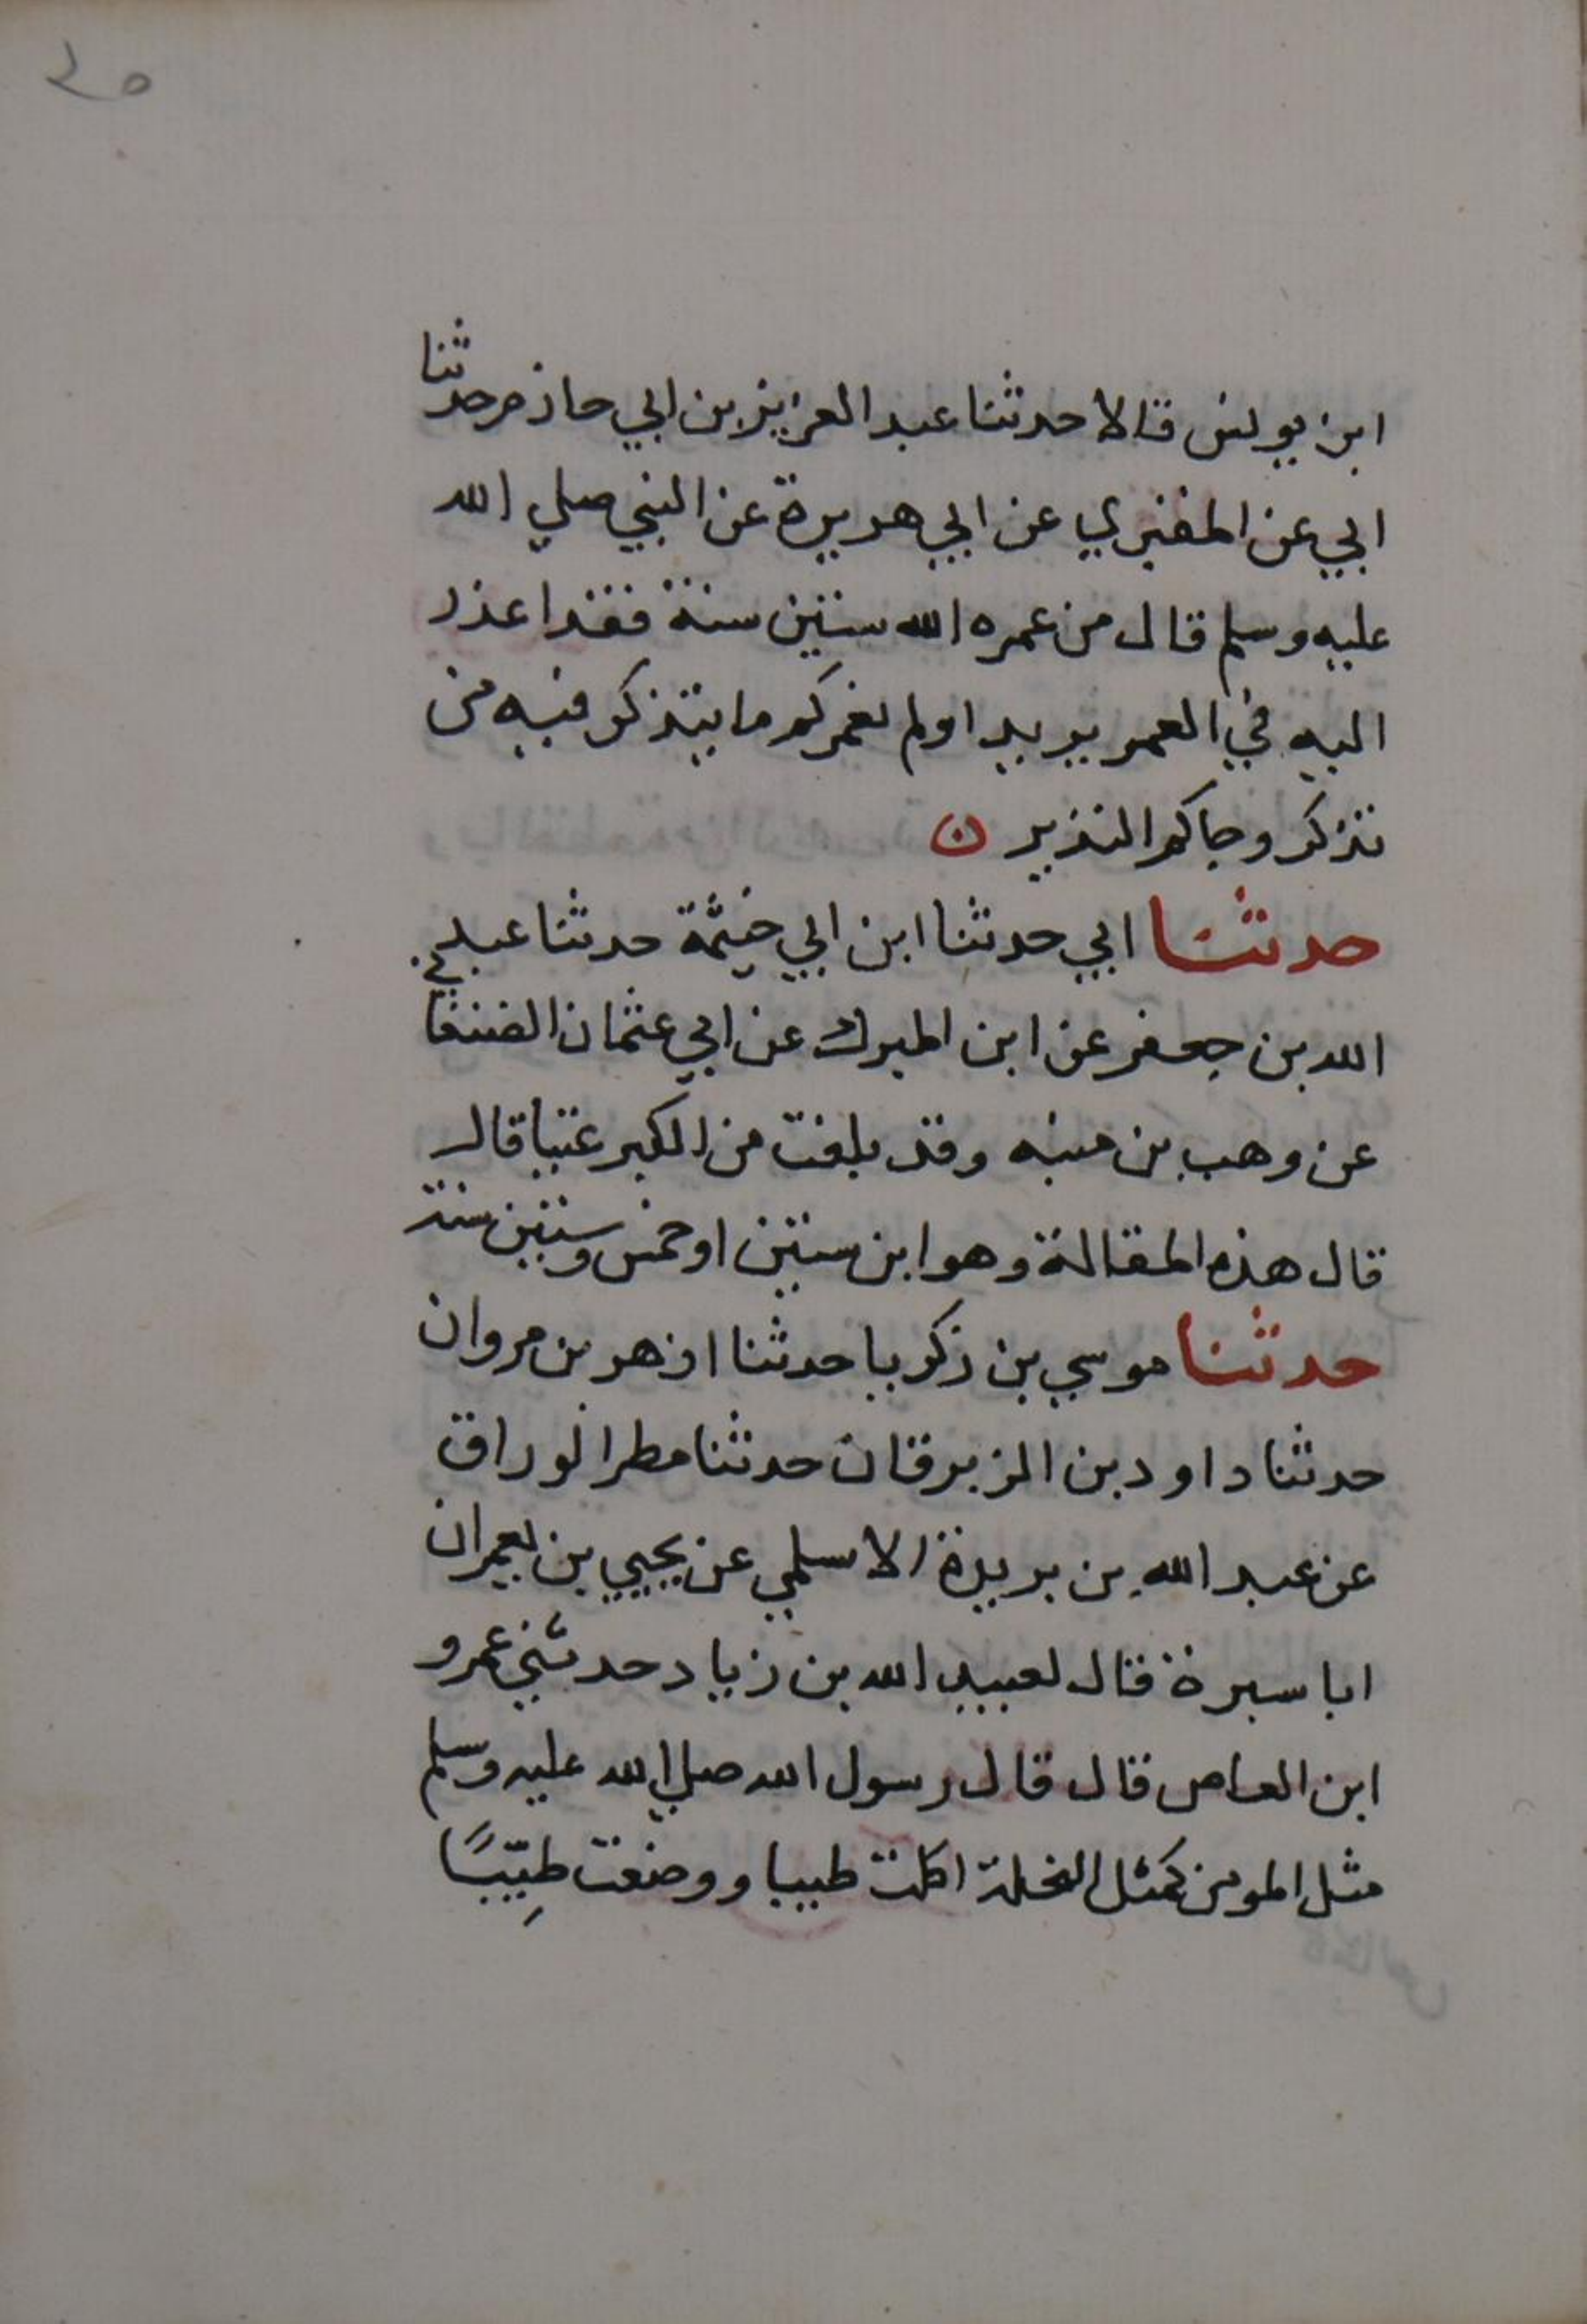 ٢٥
ابن يونس قالا حدثنا عبد العزيز بن ابي حازم حدثنا
ابي عن المقبري عن ابي هريرة عن النبي صلي الله
عليه وسلم قال من عمره الله ستين سنة فقد اعذر
اليه في العمر يريد اولم نعمركم ما يتذكر فيه من
تذكر وجاكم النذير ن
حدثنا ابي حدثنا ابن ابي خيثمة حدثنا عبد
الله بن جعفر عن ابن المبرك عن ابي عثمان الصنعاني
عن وهب بن منبه وقد بلغت من الكبر عتيا قال
قال هذه المقالة وهو ابن ستين او خمس وستين سنة
حدثنا موسي بن زكريا حدثنا ازهر بن مروان
حدثنا داود بن الزبرقان حدثنا مطر الوراق
عن عبد الله بن بريدة الاسلمي عن يحيي بن يعمر ان
ابا سبرة قال لعبيد الله بن زياد حدثني عمرو
ابن العاص قال قال رسول الله صلي الله عليه وسلم
مثل المومن كمثل النخلة اكلت طيبا ووضعت طيِّبًا